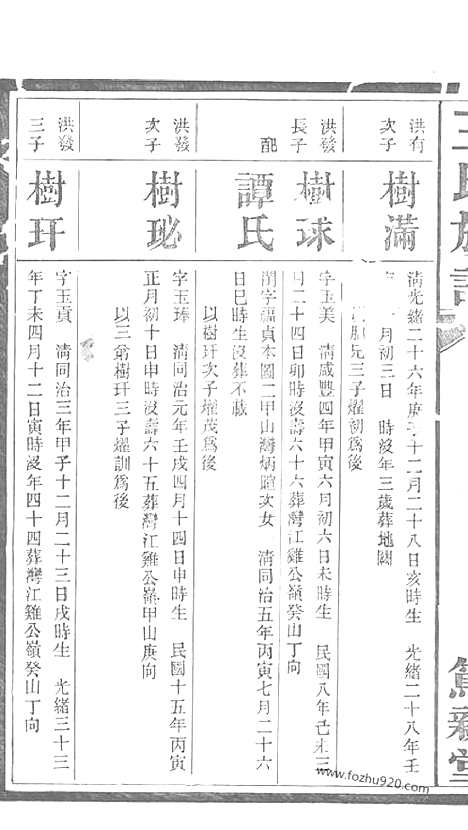 王氏族譜
新堂
洪有
次子
樹滿
清光緒二十六年庚子十二月二十八日亥時生 光緒二十八年壬
月初三日 時歿年三歲葬地闕
兄三子燿初爲後
洪發
長子
樹球
字玉美 清咸豐四年甲寅六月初六日未時生 民國八年己未三
月二十四日卯時歿壽六十六葬灣江雞公嶺癸山丁向
配
譚氏
閨字福貞本圖二甲山灣炳暄次女 清同治五年丙寅七月二十六
日巳時生歿葬不載
以樹玕次子燿茂爲後
洪發
次子
樹珌
字玉琫 清同治元年壬戌四月十四日申時生 民國十五年丙寅
正月初十日申時歿壽六十五葬灣江雞公嶺甲山庚向
以三弟樹玕三子燿訓爲後
洪發
三子
樹玕
字玉貢 清同治三年甲子十二月二十三日戌時生 光緒三十三
年丁未四月十二日寅時歿年四十四葬灣江雞公嶺癸山丁向
www.fozhu920.com